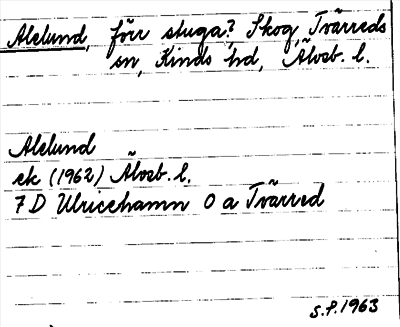 Alelund, förr stuga? Skog, Tvärreds
sn, Kinds hd, Älvsb. l.
Alelund
ek (1962) Älvsb. l.
7 D Ulricehamn 0 a Tvärred
S.P. 1963